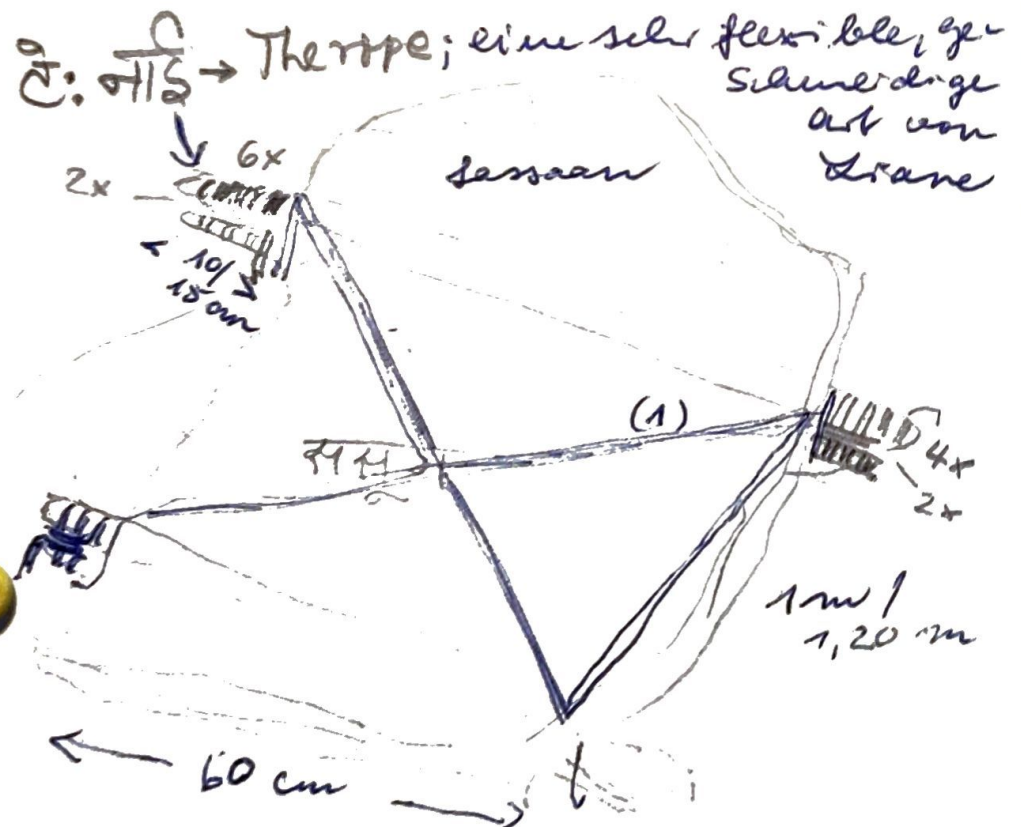 नार्इ → Therope; eine sehr flexible, ge-
schmeidige
Art von
Liane
6x
2x
sassaan
10/
15 cm
(1)
4x
2x
1 m /
1,20 m
60 cm